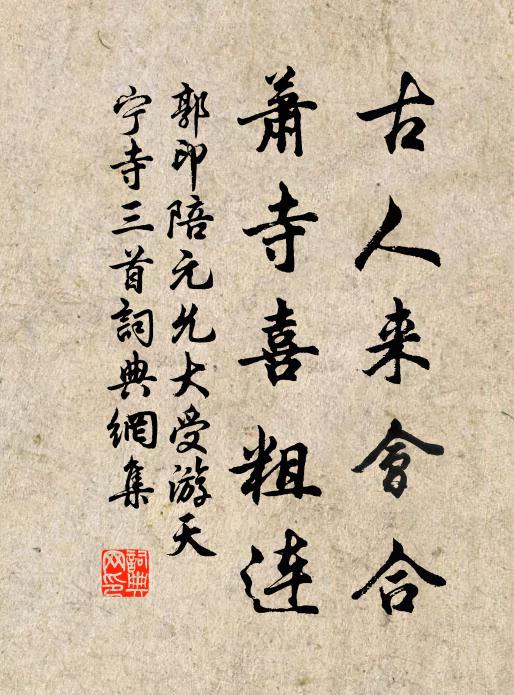 古人来會合
萧寺喜粗连
郭印陪元允大受游天
宁寺三首詞典網集
詞典网印